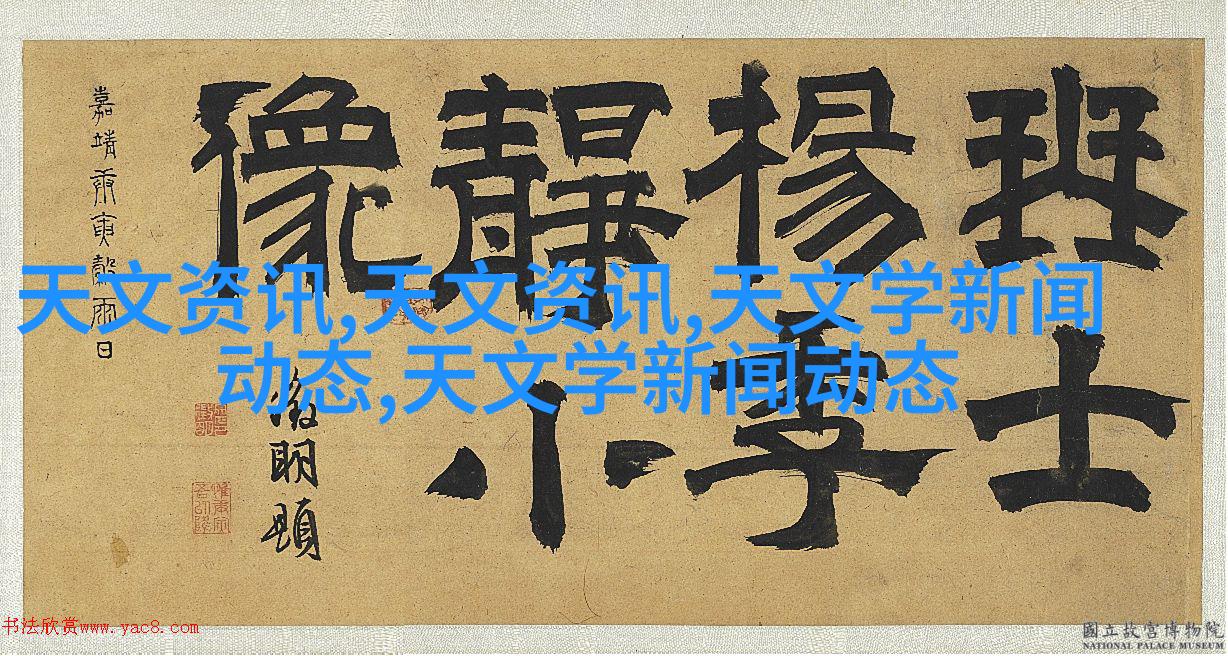 琴士
楊季
靜小
像
嘉靖庚寅穀雨日
徵明題
天文资讯,天文资讯,天文学新闻
动态,天文学新闻动态
书法欣赏www.yac8.com
國立故宮博物院
NATIONAL PALACE MUSEUM